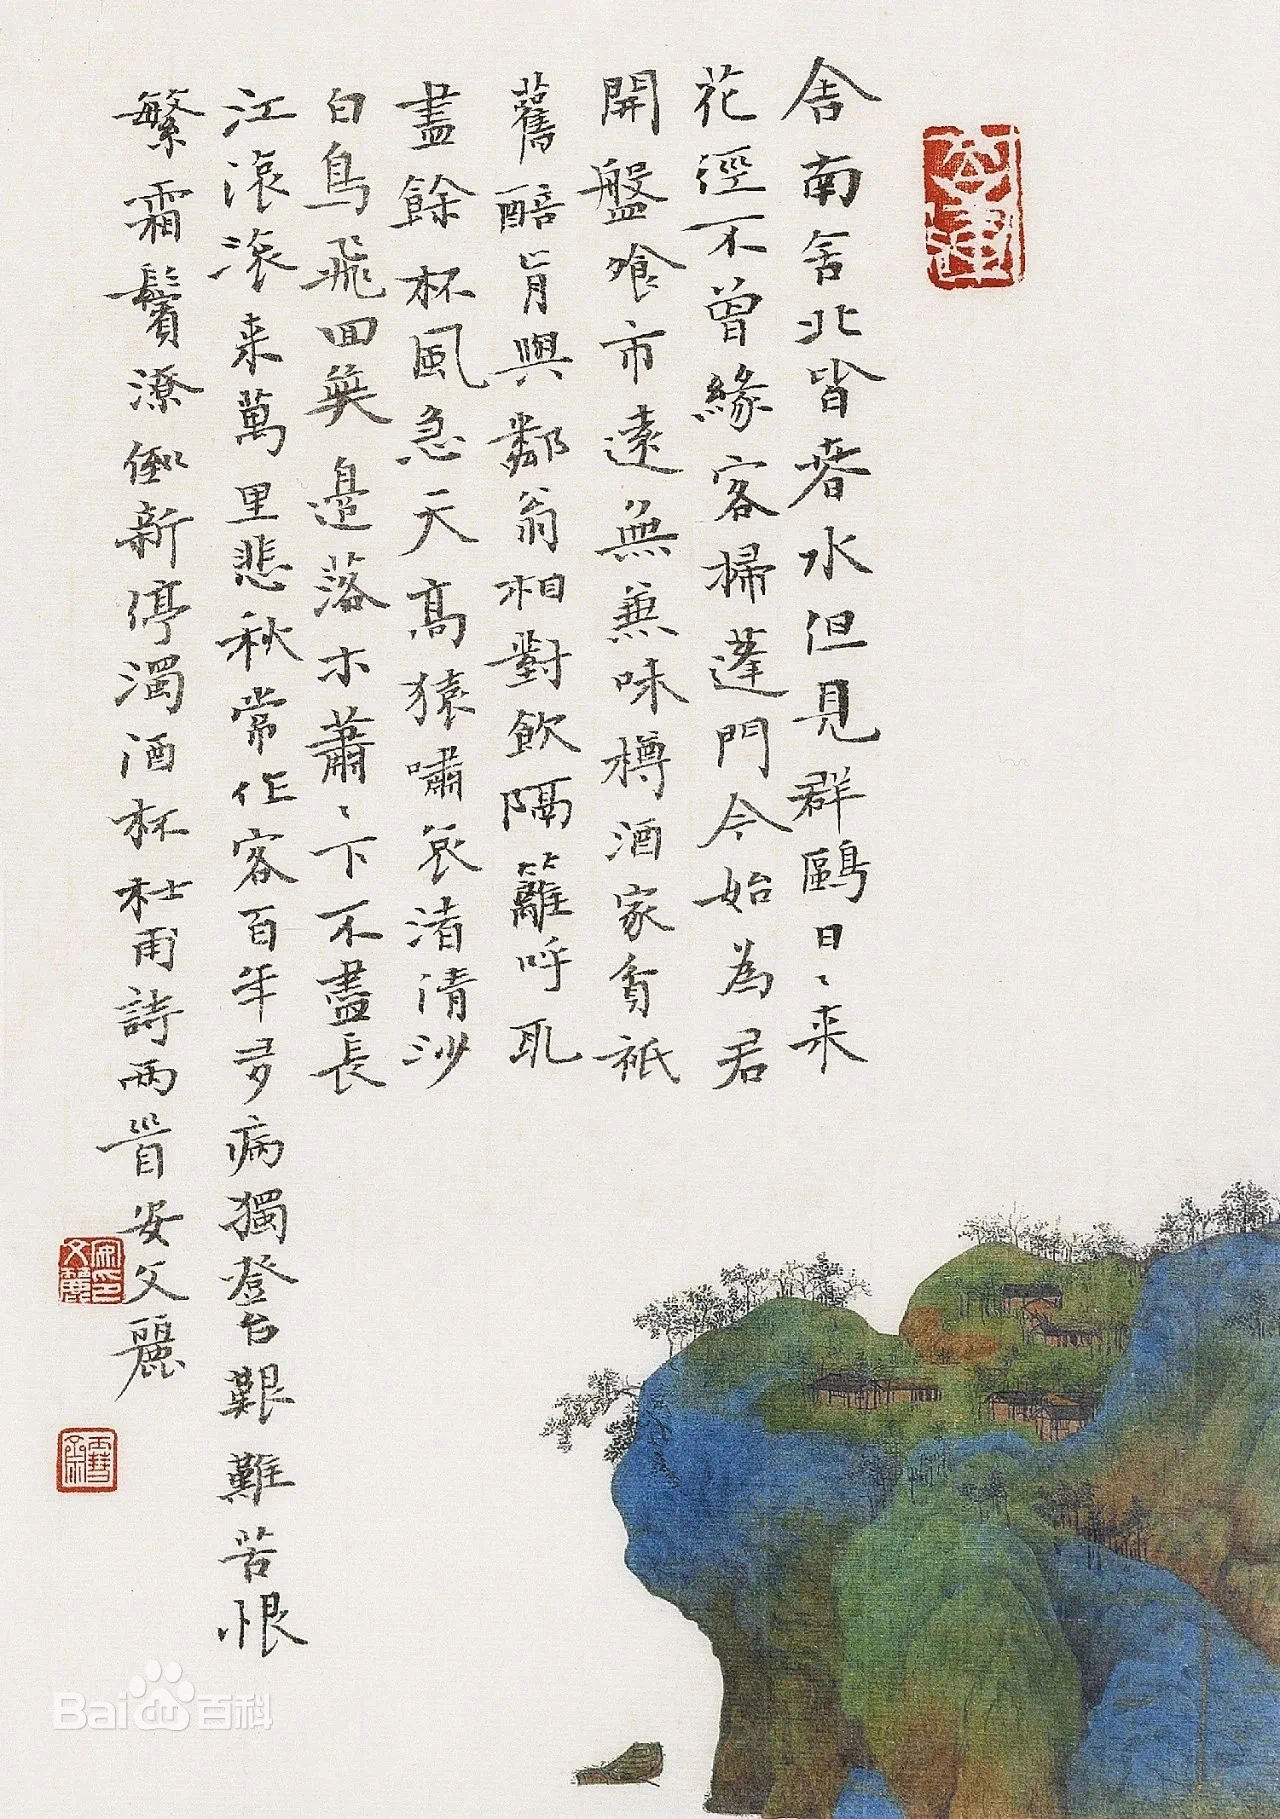 舎南舎北皆春水但見群鷗日〻来
花徑不曾緣客掃蓬門今始為君
開盤喰市遠無兼味樽酒家貧祇
舊醅肯與鄰翁相對飲隔籬呼取
盡餘杯風急天高猿嘯哀渚清沙
白鳥飛回無邊落木蕭〻下不盡長
江滾滾来萬里悲秋常作客百年多病獨登台艱難苦恨
繁霜鬢潦倒新停濁酒杯杜甫詩兩首安文麗
Bai百科